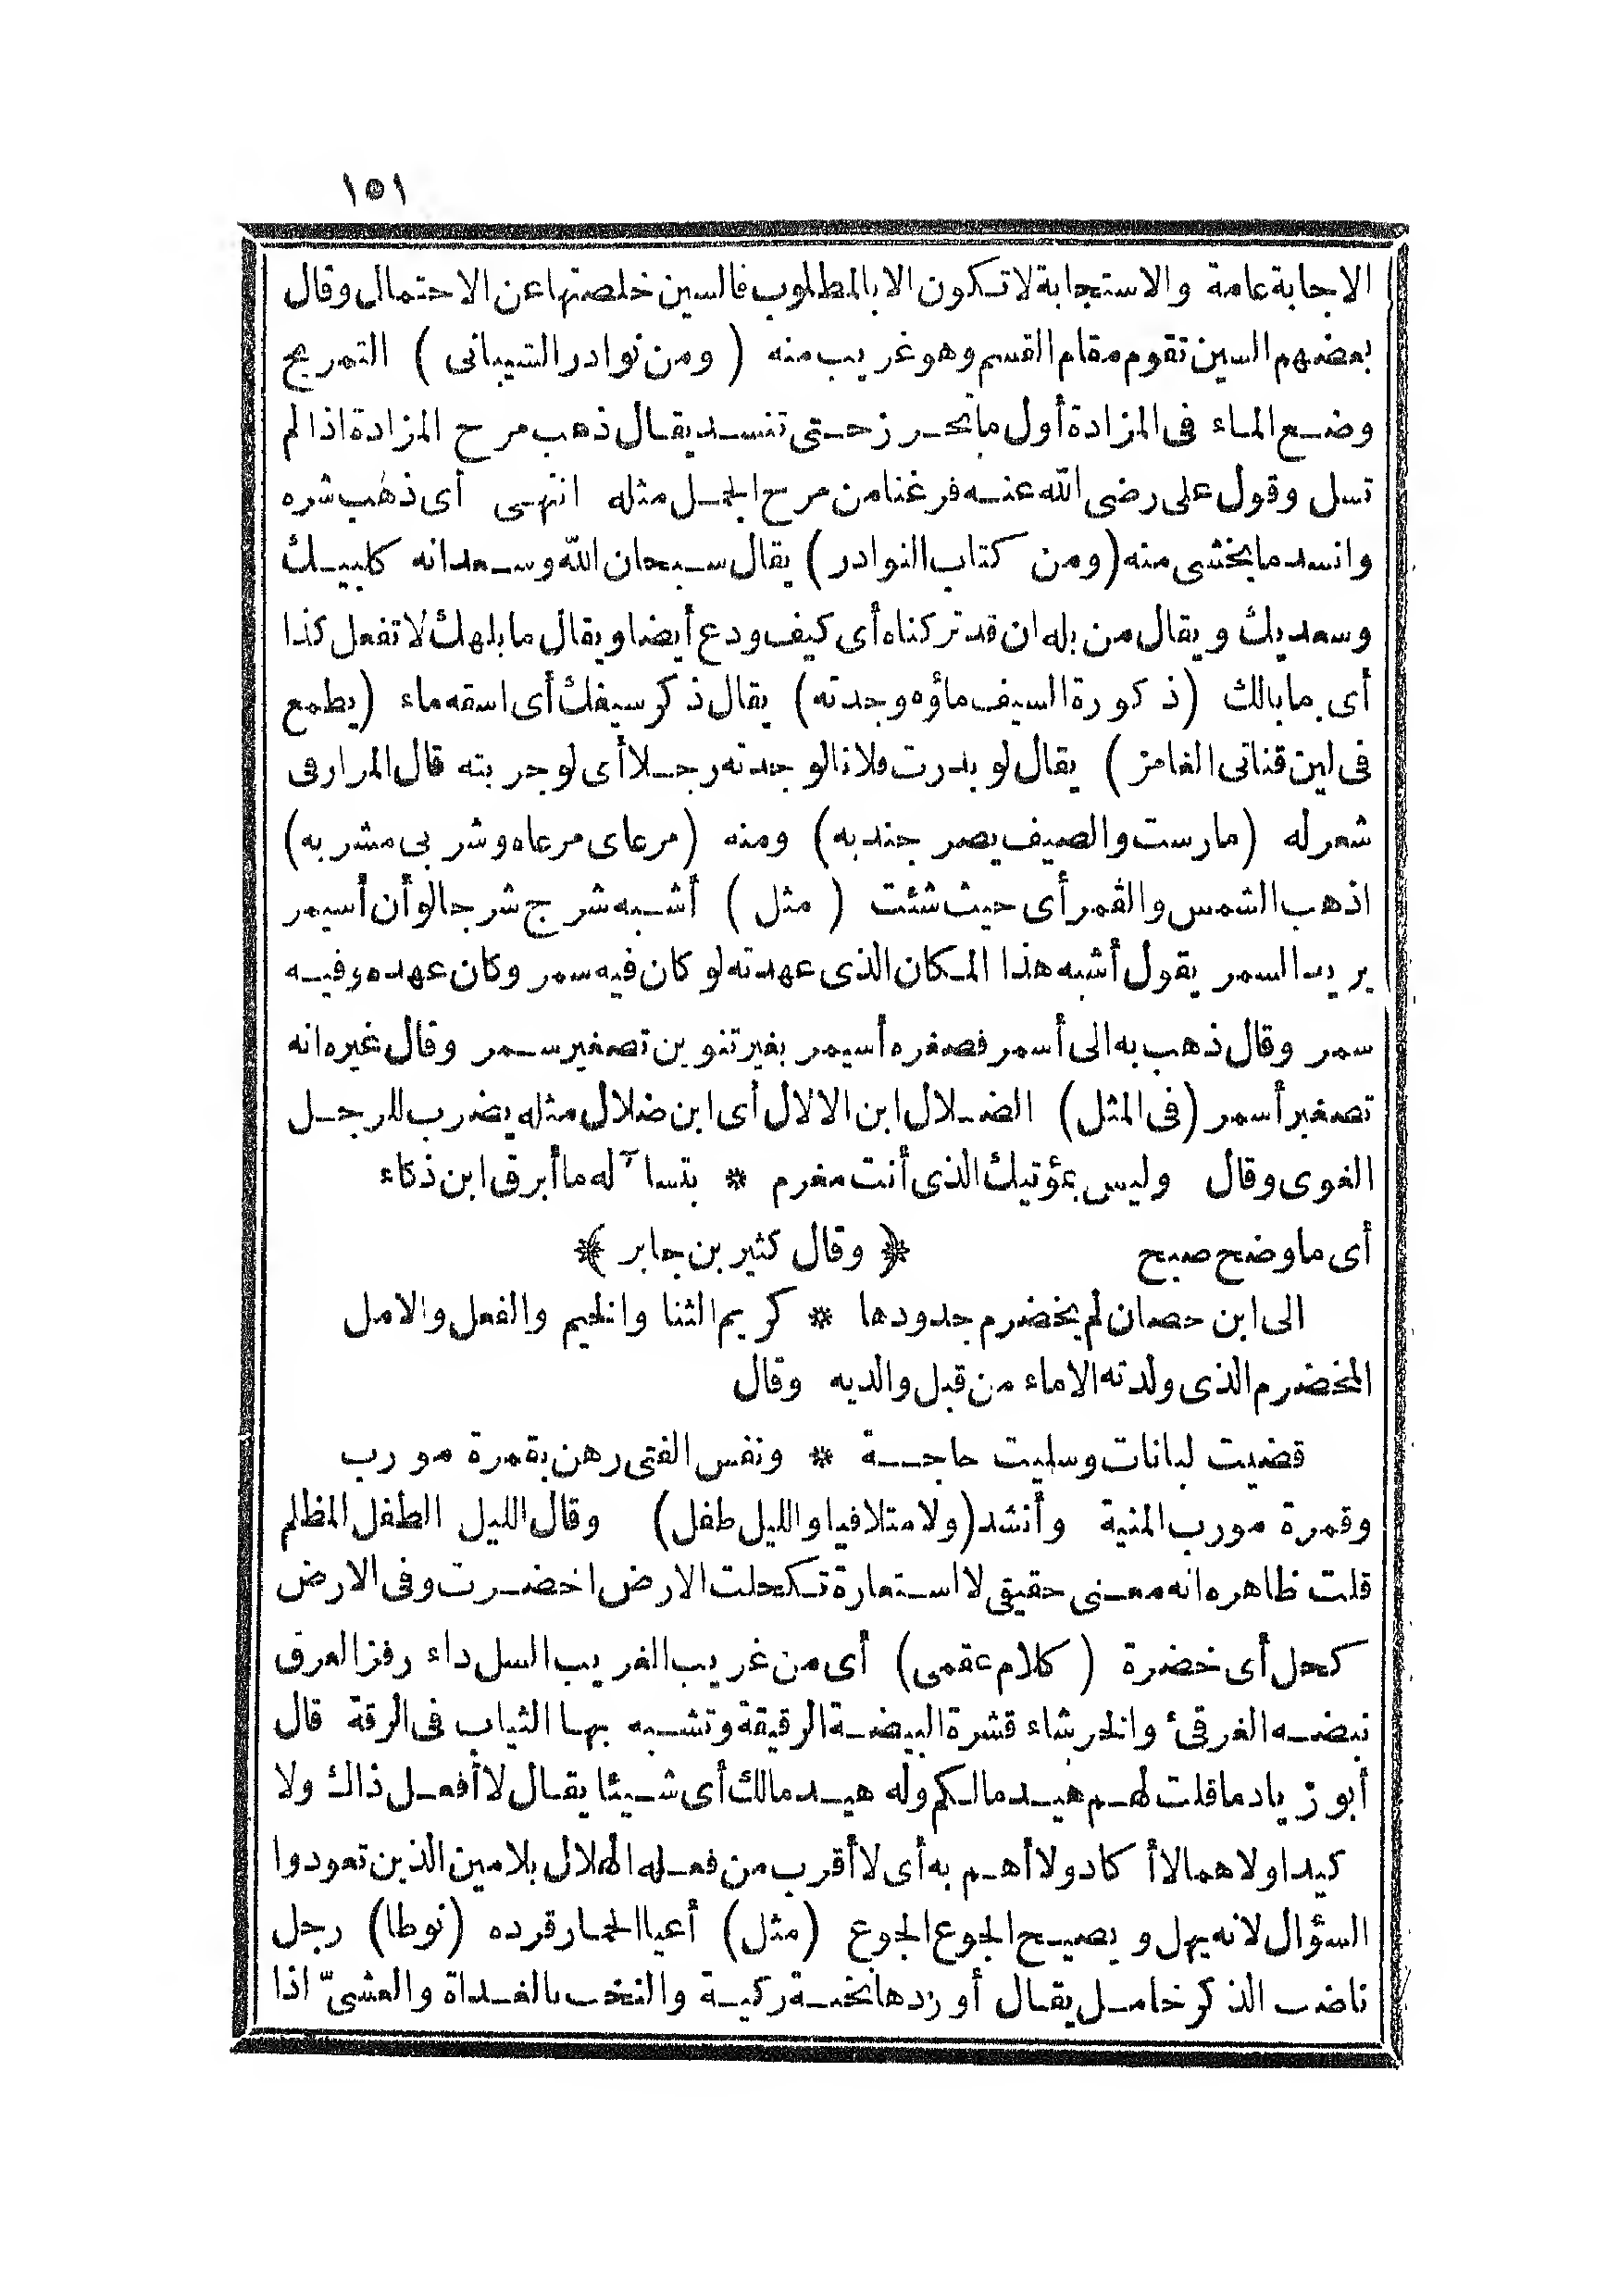 ١٥١
الاجابة عامة والاستجابة لا تكون الا بالمطلوب فالسين خلصتها عن الاحتمال وقال
بعضهم السين تقوم مقام القسم وهو غريب منه ( ومن نوادر الشيبانى ) التمريح
وضع الماء فى المزادة أول ما تخرز حتى تنسد يقال ذهب مرح المزادة اذا لم
تسل وقول على رضى الله عنه فرغنا من مرح الجمل مثله انتهى أى ذهب شره
وانسد ما يخشى منه (ومن كتاب النوادر) يقال سبحان الله وسعدانه كلبيك
وسعديك ويقال من بله ان قد تركناه أى كيف ودع أيضا ويقال ما بلهك لا تفعل كذا
أى ما بالك (ذكورة السيف ماؤه وجدته) يقال ذكر سيفك أى اسقه ماء (يطمع
فى لين قناتى الغامز ) يقال لو بدرت فلانا لوجدته رجلا أى لو جربته قال المرار فى
شعر له (مارست والصيف يصر جندبه) ومنه (مرعاى مرعاه وشربى مشربه)
اذهب الشمس والقمر أى حيث شئت ( مثل ) أشبه شرج شرجا لو أن أسيمر
يريد السمر يقول أشبه هذا المكان الذى عهدته لو كان فيه سمر وكان عهده وفيه
سمر وقال ذهب به الى أسمر فصغره أسيمر بغير تنوين تصغير سمر وقال غيره انه
تصغير أسمر (فى المثل) الضلال ابن الالال أى ابن ضلال مثله يضرب للرجل
الغوى وقال وليس بمؤتيك الذى أنت مغرم * بتسآله ما أبرق ابن ذكاء
أى ما وضح صبح ﴿ وقال كثير بن جابر ﴾
الى ابن حصان لم يخضرم جدودها * كريم الثنا والخيم والفعل والامل
المخضرم الذى ولدته الاماء من قبل والديه وقال
قضيت لبانات وسليت حاجة * ونفس الفتى رهن بقمرة مورب
وقمرة مورب المنية وأنشد (ولا متلافيا والليل طفل) وقال الليل الطفل المظلم
قلت ظاهره انه معنى حقيقى لا استعارة تكحلت الارض اخضرت وفى الارض
كحل أى خضرة ( كلام عقمى ) أى من غريب الغريب السل داء رفز العرق
نبضه الغرقئ والخرشاء قشرة البيضة الرقيقة وتشبه بها الثياب فى الرقة قال
أبو زياد ما قلت لهم هيد مالكم وله هيد مالك أى شيئا يقال لا أفعل ذاك ولا
كيدا ولا هما لا أكاد ولا أهم به أى لا أقرب من فعله الهلال بلامين الذين تعودوا
السؤال لانه يهل ويصيح الجوع الجوع (مثل) أعيا الحمار قرده (نوطا) رجل
ناضب الذكر خامل يقال أوردها نخبة ركية والنخب بالغداة والعشىّ اذا